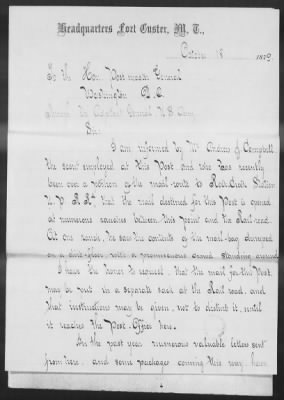 Headquarters Fort Custer, M. T.,
October 18 1879
To the Hon. Post master General
Washington D.C.
Through the Adjutant General U S Army
Sir:
I am informed by Mr Andrew J. Campbell
the scout employed at this Post and who has recently
been over a portion of the mail route to Rock Creek Station
U. P. R.R. that the mail destined for this Post is opened
at numerous ranches between this point and the Rail road.
At one ranch he saw the contents of the mail-bag dumped
on a dirt-floor, with a promiscuous crowd standing around
I have the honor to request, that the mail for this Post,
may be put in a separate sack at the Rail road, and
that instructions may be given, not to distribute it, until
it reaches the Post-Office here.
In the past year numerous valuable letters sent
from here, and some packages coming this way, have